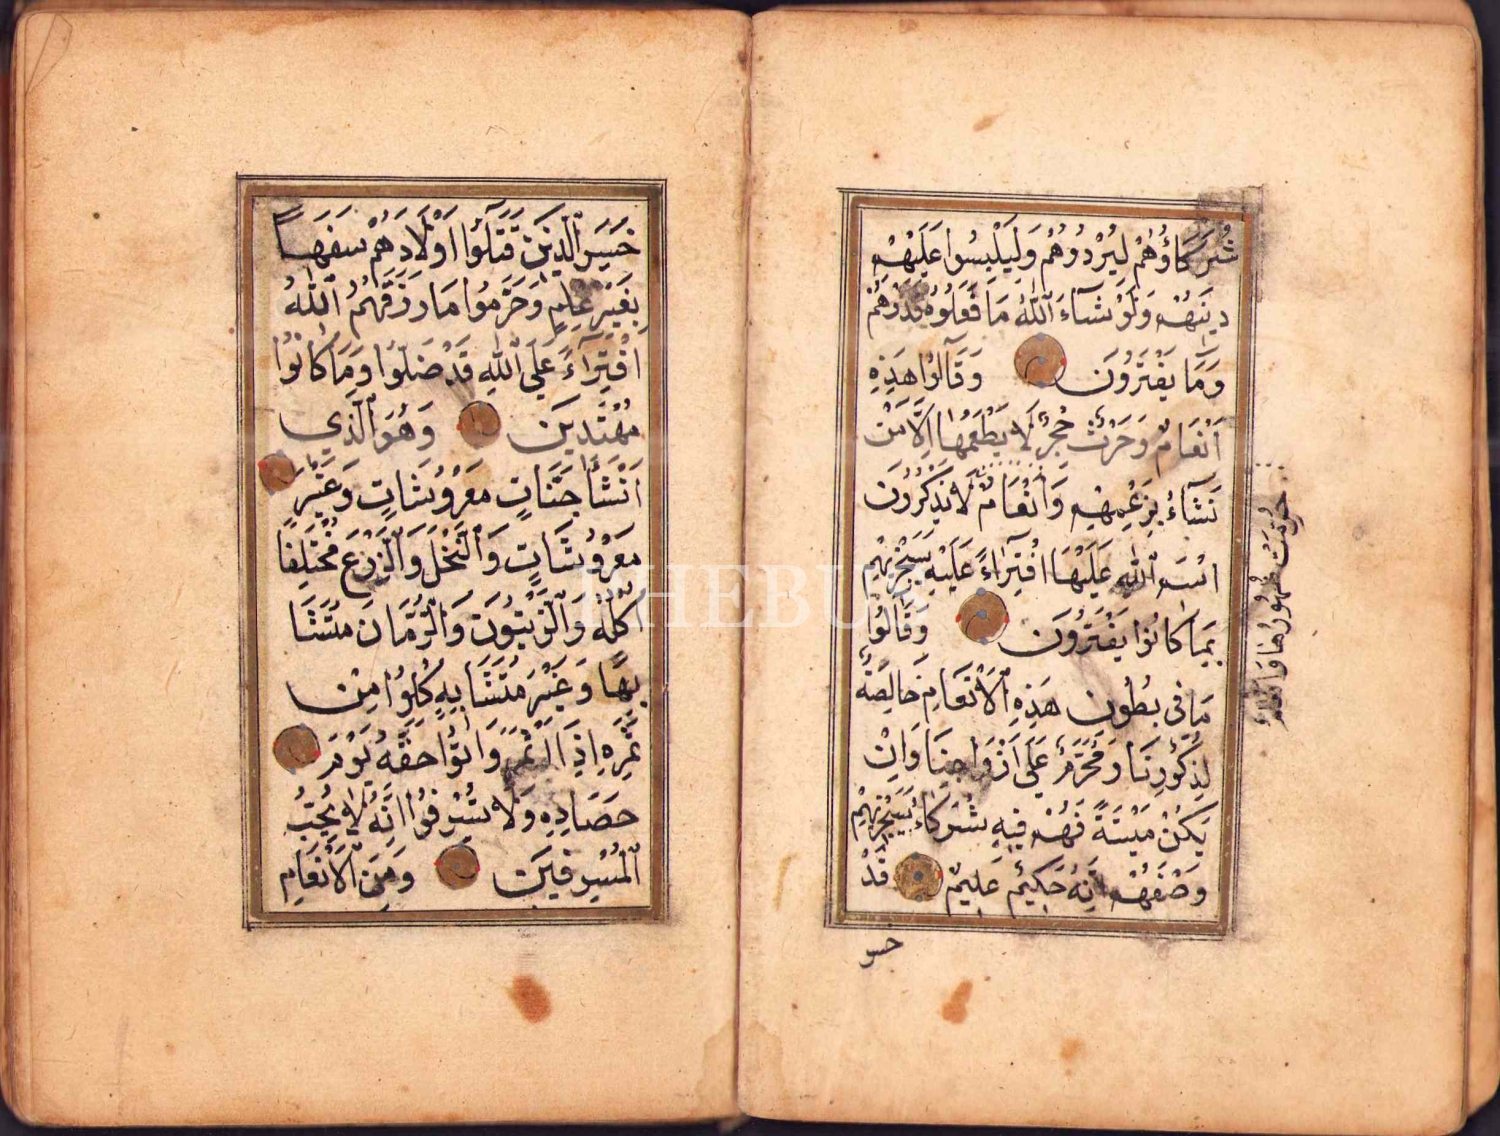 شُرَكَاؤُهُمْ لِيُرْدُوهُمْ وَلِيَلْبِسُوا عَلَيْهِمْ
دِينَهُمْ وَلَوْ شَآءَ ٱللّٰهُ مَا فَعَلُوهُ فَذَرْهُمْ
وَمَا يَفْتَرُونَ وَقَالُوا هَذِهِ
اَنْعَامٌ وَحَرْثٌ حِجْرٌ لَا يَطْعَمُهَا اِلَّا مَنْ
نَشَآءُ بِزَعْمِهِمْ وَاَنْعَامٌ لَا يَذْكُرُونَ
اسْمَ ٱللّٰهِ عَلَيْهَا افْتِرَآءً عَلَيْهِ سَيَجْزِيهِمْ
بِمَا كَانُوا يَفْتَرُونَ وَقَالُوا
مَا فِى بُطُونِ هَذِهِ ٱلْاَنْعَامِ خَالِصَةٌ
لِذُكُورِنَا وَمُحَرَّمٌ عَلَى اَزْوَاجِنَا وَاِنْ
يَكُنْ مَيْتَةً فَهُمْ فِيهِ شُرَكَاءُ سَيَجْزِيهِمْ
وَصْفَهُمْ اِنَّهُ حَكِيمٌ عَلِيمٌ قَدْ
خسر
حُرِّمَتْ ظُهُورُهَا وَاَنْعَامٌ
خَسِرَ ٱلَّذِينَ قَتَلُوا اَوْلَادَهُمْ سَفَهًا
بِغَيْرِ عِلْمٍ وَحَرَّمُوا مَا رَزَقَهُمُ ٱللّٰهُ
افْتِرَآءً عَلَى ٱللّٰهِ قَدْ ضَلُّوا وَمَا كَانُوا
مُهْتَدِينَ وَهُوَ ٱلَّذِى
اَنْشَأَ جَنَّاتٍ مَعْرُوشَاتٍ وَغَيْرَ
مَعْرُوشَاتٍ وَٱلنَّخْلَ وَٱلزَّرْعَ مُخْتَلِفًا
اُكُلُهُ وَٱلزَّيْتُونَ وَٱلرُّمَّانَ مُتَشَا
بِهًا وَغَيْرَ مُتَشَابِهٍ كُلُوا مِنْ
ثَمَرِهِ اِذَا اَثْمَرَ وَاٰتُوا حَقَّهُ يَوْمَ
حَصَادِهِ وَلَا تُسْرِفُوا اِنَّهُ لَا يُحِبُّ
ٱلْمُسْرِفِينَ وَمِنَ ٱلْاَنْعَامِ
PHEBUS